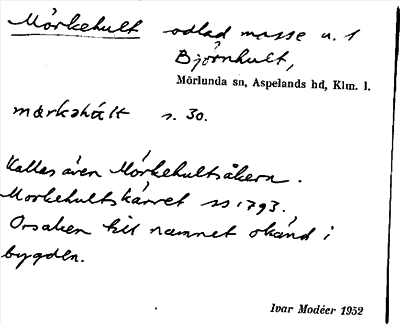 Mörkehult odlad mosse u. 1
Björnhult,
Mörlunda sn, Aspelands hd, Klm. l.
mørkəhúlt s. 30.
Kallas även Mörkehultsåkern.
Mörkehultskärret SS 1793.
Orsaken till namnet okänd i
bygden.
Ivar Modéer 1952